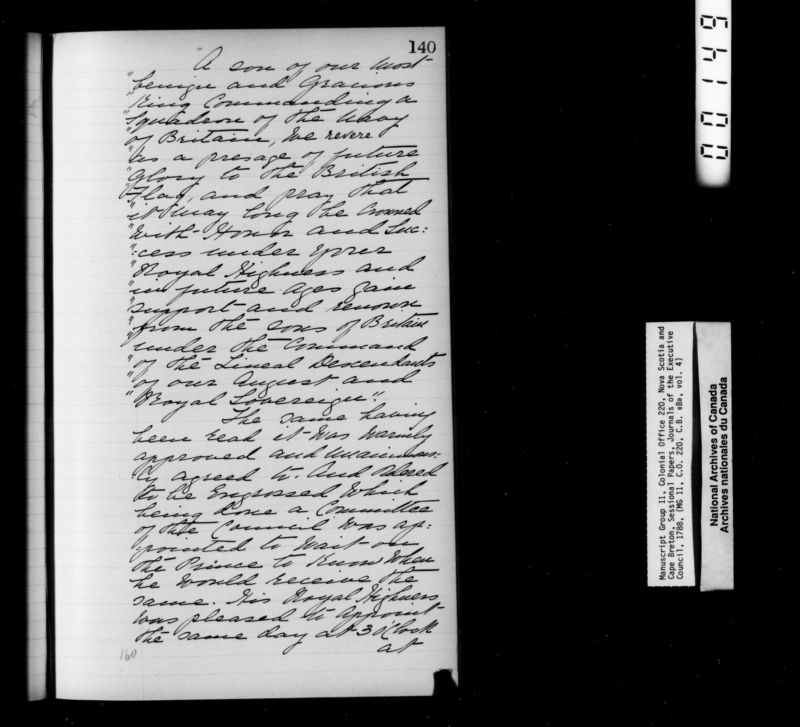 140
"A son of our most
"benign and Gracious
"King Commanding a
"Squadron of the Navy
"of Britain, we revere
"as a presage of future
"Glory to the British
"Flag, and pray that
"it may long be Crowned
"with Honor and Suc:
":cess under Your
"Royal Highness and
"in future ages gain
"support and renown
"from the sons of Britain
"under the Command
"of the Lineal Descendants
"of our August and
"Royal Sovereign".
The same having
been read it was warmly
approved and unanimous:
ly agreed to. And Ordered
to be Engrossed Which
being done a Committee
of the Council was ap:
:pointed to wait on
the Prince to know when
he would receive the
same. His Royal Highness
was pleased to appoint
the same day at 3 O'Clock
at
160
00149
Manuscript Group 11, Colonial Office 220, Nova Scotia and
Cape Breton, Sessional Papers, Journals of the Executive
Council, 1788, (MG 11, C.O. 220, C.B. «B», vol. 4)
National Archives of Canada
Archives nationales du Canada